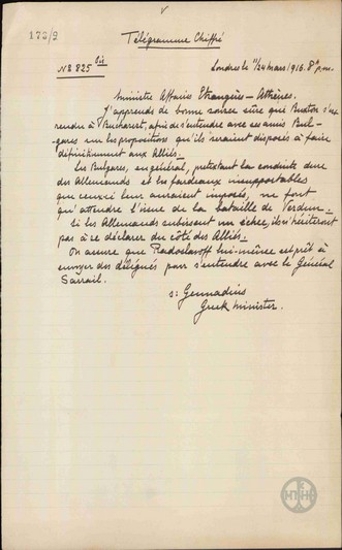 V
173/2
Télégramme Chiffré
№ 825 bis
Londres le 11/24 Mars 1916. 8 p.m.
Ministre Affaires Etrangères – Athènes.
J'apprends de bonne source sûre que Buxton s'est
rendu à Bucharest, afin de s'entendre avec ses amis Bul-
gares sur les propositions qu'ils seraient disposés à faire
définitivement aux Alliés.
Les Bulgares, en général, prétextant la conduite dure
des Allemands et les fardeaux insupportables
que ceux-ci leur auraient imposés, ne font
qu'attendre l'issue de la bataille de Verdun.
Si les Allemands subissent un échec, ils n'hésiteront
pas à se déclarer du côté des Alliés.
On assure que Radoslavoff lui-même est prêt à
envoyer des délégués pour s'entendre avec le Général
Sarrail.
s: Gennadius
Greek Minister.